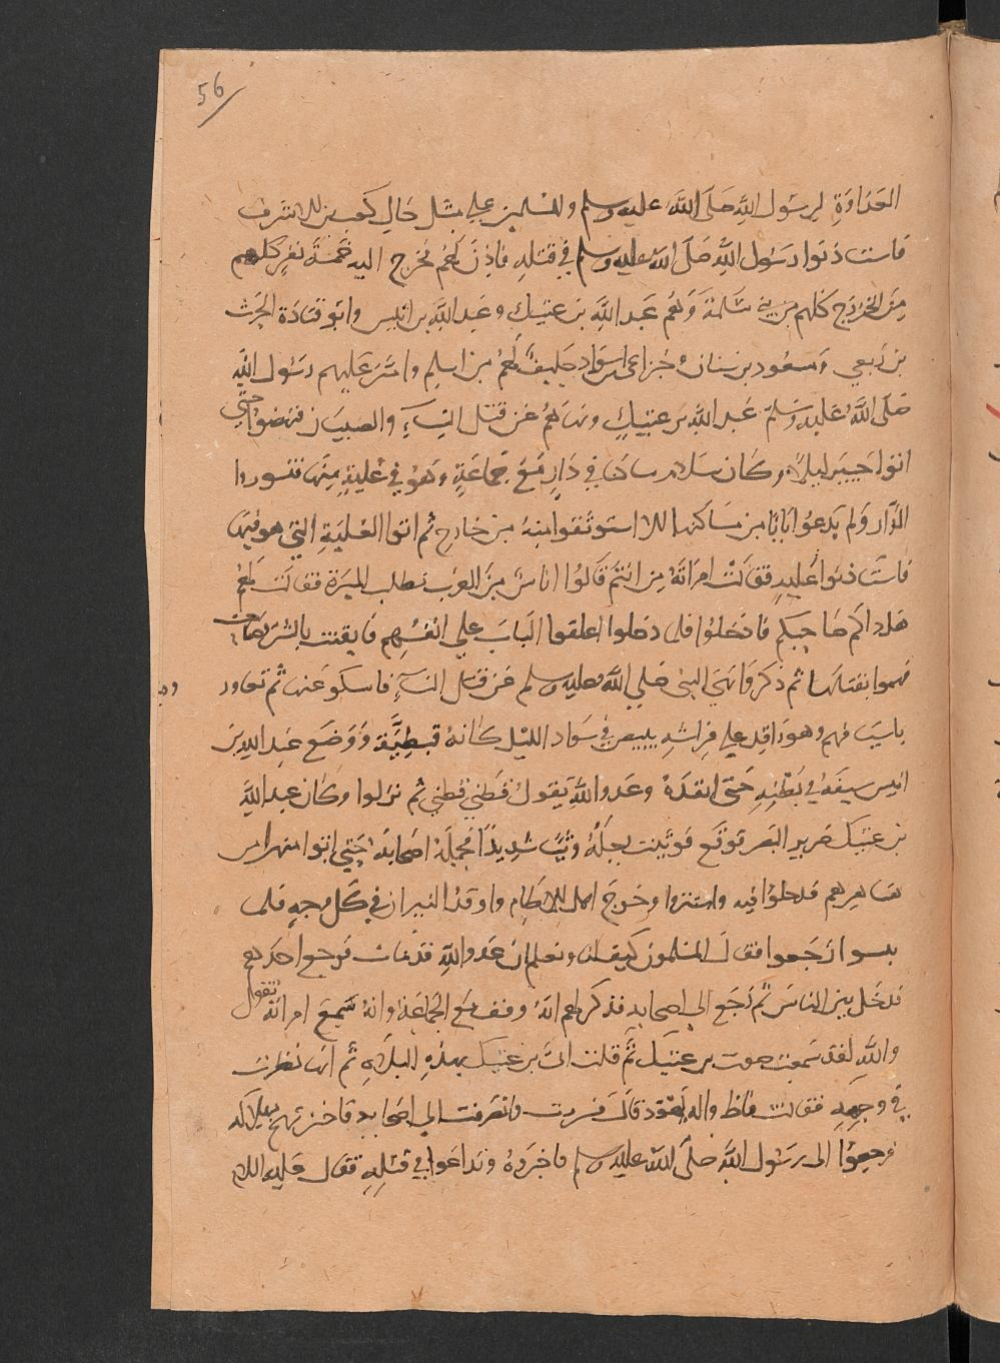 56
العداوة لرسول الله صلى الله عليه وسلم والمسلمين على مثل حال كعب بن الاشرف
فاستاذنوا رسول الله صلى الله عليه وسلم في قتله فاذن لهم فخرج اليه خمسة نفر كلهم
من الخزرج كلهم من بني سلمة وهم عبد الله بن عتيك وعبد الله بن انيس وابو قتادة الحرث
بن ربعي ومسعود بن سنان وخزاعى بن اسود حليف لهم من اسلم وامر عليهم رسول الله
صلى الله عليه وسلم عبد الله بن عتيك ونهاهم عن قتل النساء والصبيان فنهضوا حتي
اتوا خيبر ليلا وكان سلام ساكنا في دار مع جماعة وهو في علية منها فتسوروا
الدار ولم يدعوا بابا من مساكنها الا استوثقوا منه من خارج ثم اتوا العلية التي هو فيها
فاستاذنوا عليه فقالت امراته من انتم قالوا اناس من العرب نطلب الميرة فقالت لهم
هذاكم صاحبكم فادخلوا فلما دخلوا اغلقوا الباب علي انفسهم فايقنت بالشر وصاحت
فهموا بقتلها ثم ذكروا نهي النبي صلى الله عليه وسلم عن قتل النساء فامسكو عنها ثم تعاور
باسيافهم وهو راقد علي فراشه يبيص في سواد الليل كانه قبطية ووضع عبد الله بن
انيس سيفه في بطنه حتى انفذه وعدو الله يقول قطني قطني ثم نزلوا وكان عبد الله
بن عتيك ضرير البصر فوقع فوثيت رجله وثيا شديدا فحمله اصحابه حتي اتوا منهرا من
مناهرهم فدخلوا فيه واستتروا وخرج اهل الاطام واوقدوا النيران في كل وجه فلما
يسوا رجعوا فقال المسلمون كيف لنا ونعلم ان عدو الله قد مات فرجع احدهم
فدخل بين الناس ثم رجع الي اصحابه فذكر لهم انه وقف مع الجماعة وانه سمع امراته تقول
والله لقد سمعت صوت بن عتيك ثم قلت انى بن عتيك بهذه البلاد ثم انها نظرت
في وجهه فقالت فاظ واله يهود قال فسررت وانصرفت الي اصحابي فاخبرتهم بهلاكه
فرجعوا الى رسول الله صلى الله عليه وسلم فاخبروه وتداعوا في قتله فقال عليه السلام